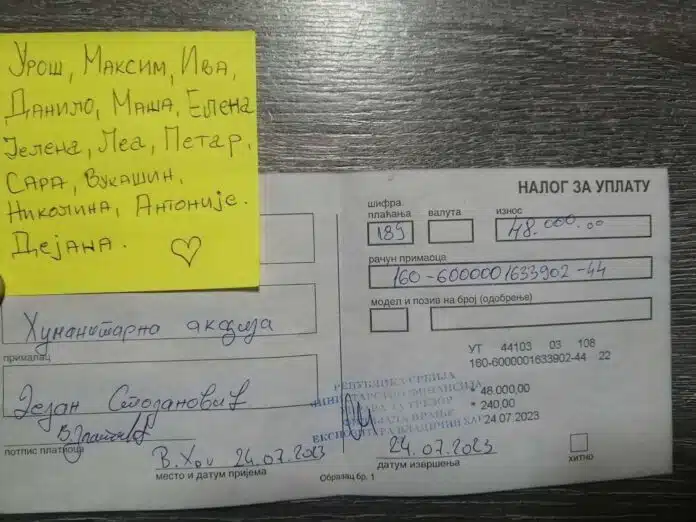 Урош, Максим, Ива,
Данило, Маша, Елена
Јелена, Леа, Петар,
Сара, Вукашин,
Николина, Антоније.
Дејана. ♡
НАЛОГ ЗА УПЛАТУ
шифра плаћања
валута
износ
189
48.000.00
рачун примаоца
160-6000001633902-44
модел и позив на број (одобрење)
Хуманитарна акција
прималац
Дејан Стојановић
УТ 44103 03 108
160-6000001633902-44 22
* 48.000,00
* 240,00
24.07.2023
РЕПУБЛИКА СРБИЈА
МИНИСТАРСТВО ФИНАНСИЈА
УПРАВА ЗА ТРЕЗОР
ФИЛИЈАЛА ВРАЊЕ
ЕКСПОЗИТУРА ВЛАДИЧИН ХАН
потпис платиоца
В.Хан 24.07.2023
место и датум пријема
Образац бр. 1
24.07.2023
датум извршења
хитно